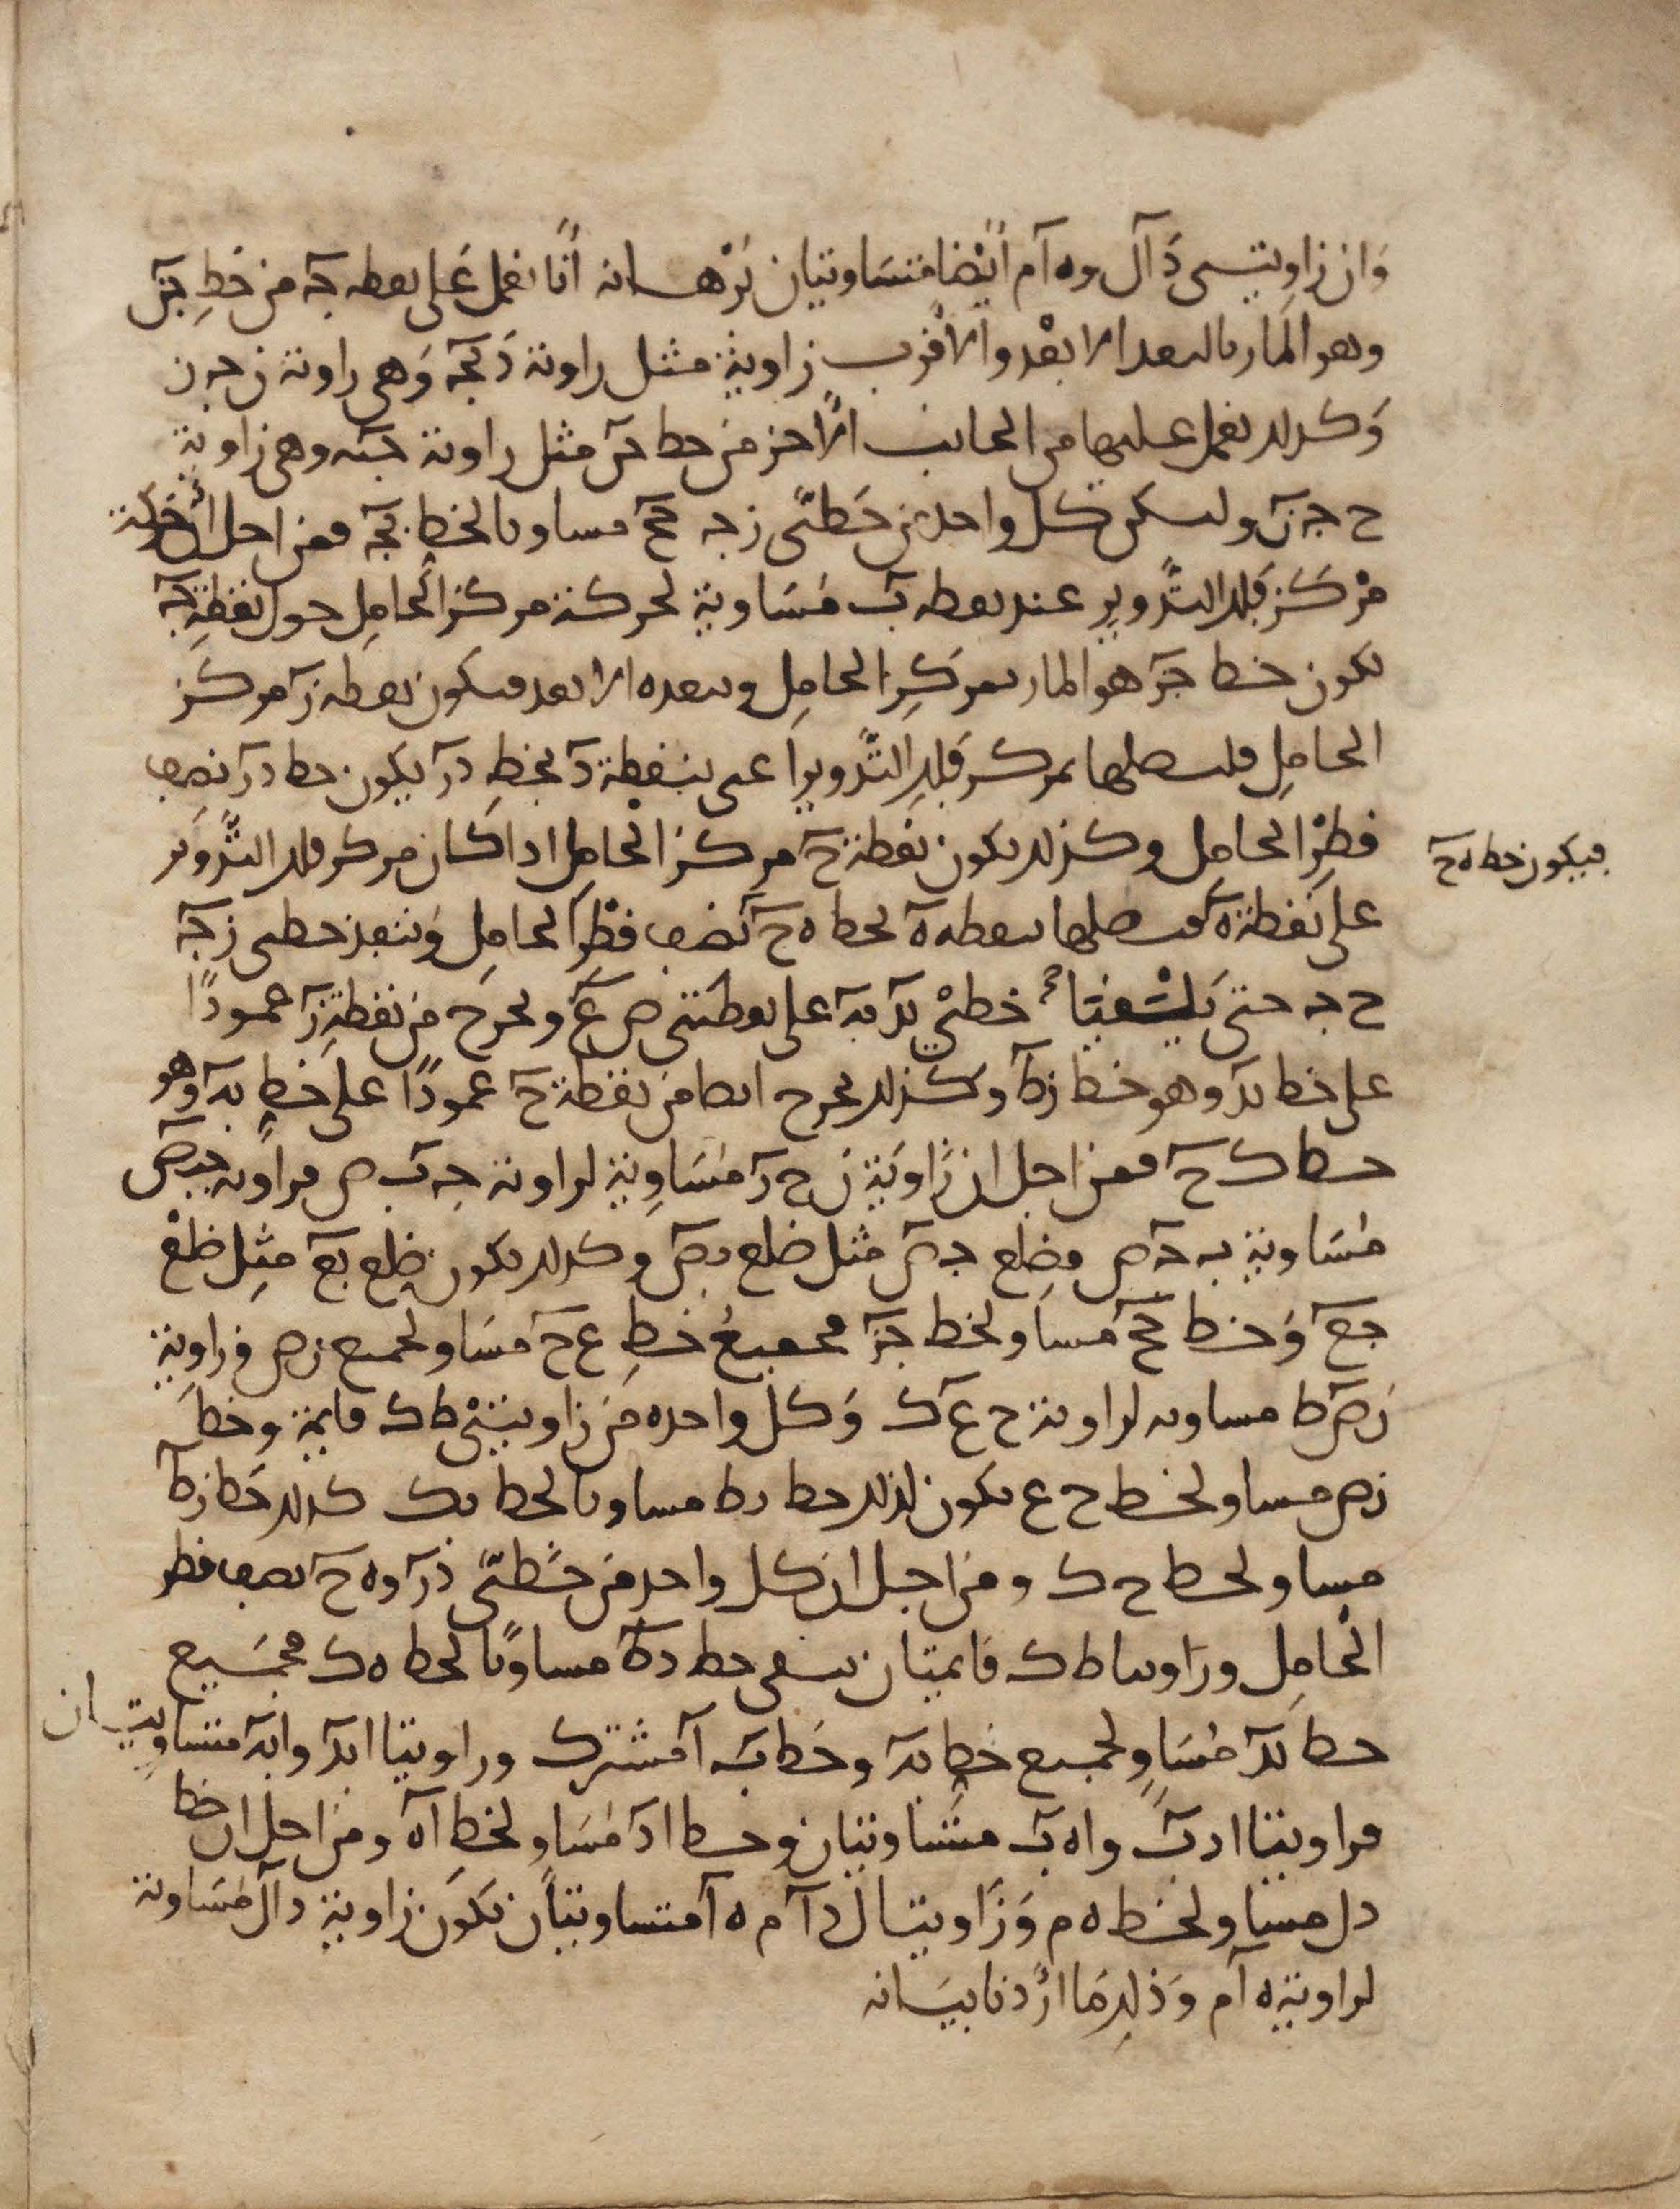 وان زاويتى دآل وه آم ايضا متساويتان برهانه انا نعمل على نقطه جـ من خط جن
وهو المار بالبعد الابعد والاقرب زاوية مثل زاوية دبجـ وهى زاوية ز جـ ن
وكذلك نعمل عليها من الجانب الاخر من خط جن مثل زاوية جبه وهى زاوية
ح جـ ن وليكن كل واحد من خطى زجـ جح مساويا لخط بجـ فمن اجل ان حركة
مركز فلك التدوير عند نقطه ب مساوية لحركة مركز الحامل حول نقطة جـ
يكون خط جز هو المار بمركز الحامل وببعده الابعد فيكون نقطه ز مركز
الحامل فلنصلها بمركز فلك التدوير اعنى بنقطة د بخط دز يكون خط دز نصف
قطر الحامل وكذلك يكون نقطة ح مركز الحامل اذا كان مركز فلك التدوير
فيكون خط ه ح
على نقطة ه فنصلها بنقطه ه بخط ه ح نصف قطر الحامل وننفذ خطى زجـ
ح جـ حتى يلتقيا خطى بد به على نقطتى ص ع ونخرج من نقطة ز عمودا
على خط بد وهو خط زط وكذلك نخرج ايضا من نقطة ح عمودا على خط به وهو
خط ك ح فمن اجل ان زاوية ن جـ ز مساوية لزاوية جـ ب ص فزاويه جبص
مساوية بـ جـ ص فضلع جـ ص مثل ضلع بص وكذلك يكون ضلع بع مثل ضلع
جع وخط جح مساو لخط جز فجميع خط ع ح مساو لجميع زص وزاوية
زص ط مساويه لزاوية ح ع ك وكل واحده من زاويتى ط ك قايمة وخط
زص مساو لخط ح ع يكون لذلك خط بط مساويا لخط بك كذلك خط زط
مساو لخط ح ك ومن اجل ان كل واحد من خطى دز وه ح نصف قطر
الحامل وزاويتا ط ك قايمتان يبقى خط دط مساويا لخط ه ك فجميع
خط بد مساو لجميع خط به وخط ب آ مشترك وزاويتا ابد وابه متساويتان
فزاويتا ادب واه ب متساويتان وخط اد مساو لخط اه ومن اجل ان خط
دل مساو لخط ه م وزاويتا ل د آ م ه آ متساويتان تكون زاوية دآل مساوية
لزاوية ه آم وذلك ما اردنا بيانه